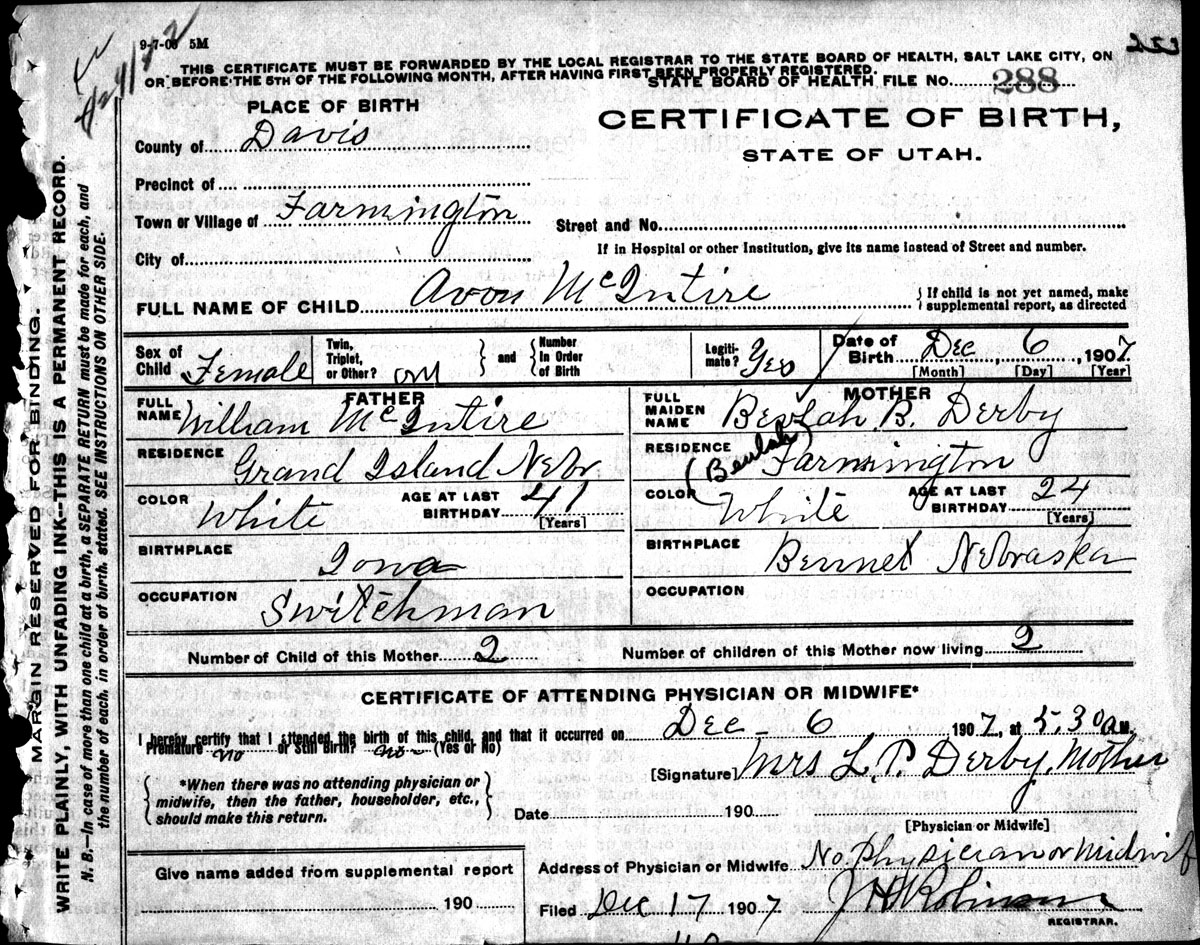 9-7-06 5M
THIS CERTIFICATE MUST BE FORWARDED BY THE LOCAL REGISTRAR TO THE STATE BOARD OF HEALTH, SALT LAKE CITY, ON
OR BEFORE THE 5TH OF THE FOLLOWING MONTH, AFTER HAVING FIRST BEEN PROPERLY REGISTERED.
STATE BOARD OF HEALTH FILE No. 288
PLACE OF BIRTH
CERTIFICATE OF BIRTH,
STATE OF UTAH.
County of Davis
Precinct of
Town or Village of Farmington
Street and No.
City of
If in Hospital or other Institution, give its name instead of Street and number.
FULL NAME OF CHILD Avon McIntire
} If child is not yet named, make supplemental report, as directed
Sex of Child Female
Twin, Triplet, or Other?
} and { Number In Order of Birth
Legiti-mate? Yes
Date of Birth Dec, 6, 1907
[Month] [Day] [Year]
FATHER
FULL NAME William McIntire
RESIDENCE Grand Island Nebr.
COLOR White
AGE AT LAST BIRTHDAY 41
[Years]
BIRTHPLACE Iowa
OCCUPATION Switchman
MOTHER
FULL MAIDEN NAME Beulah B. Derby
(Beulah)
RESIDENCE Farmington
COLOR White
AGE AT LAST BIRTHDAY 24
[Years]
BIRTHPLACE Bennet Nebraska
OCCUPATION
Number of Child of this Mother 2
Number of children of this Mother now living 2
CERTIFICATE OF ATTENDING PHYSICIAN OR MIDWIFE*
I hereby certify that I attended the birth of this child, and that it occurred on Dec - 6 1907, at 5.30 a.M.
Premature No or Still Birth? no (Yes or No)
{ *When there was no attending physician or midwife, then the father, householder, etc., should make this return. }
[Signature] Mrs L. P. Derby, Mother
Date 190
[Physician or Midwife]
Give name added from supplemental report
190
Address of Physician or Midwife No Physician or Midwif
Filed Dec 17 1907 J H Robinson
REGISTRAR.
MARGIN RESERVED FOR BINDING.
WRITE PLAINLY, WITH UNFADING INK--THIS IS A PERMANENT RECORD.
N. B.--In case of more than one child at a birth, a SEPARATE RETURN must be made for each, and
the number of each, in order of birth, stated. SEE INSTRUCTIONS ON OTHER SIDE.